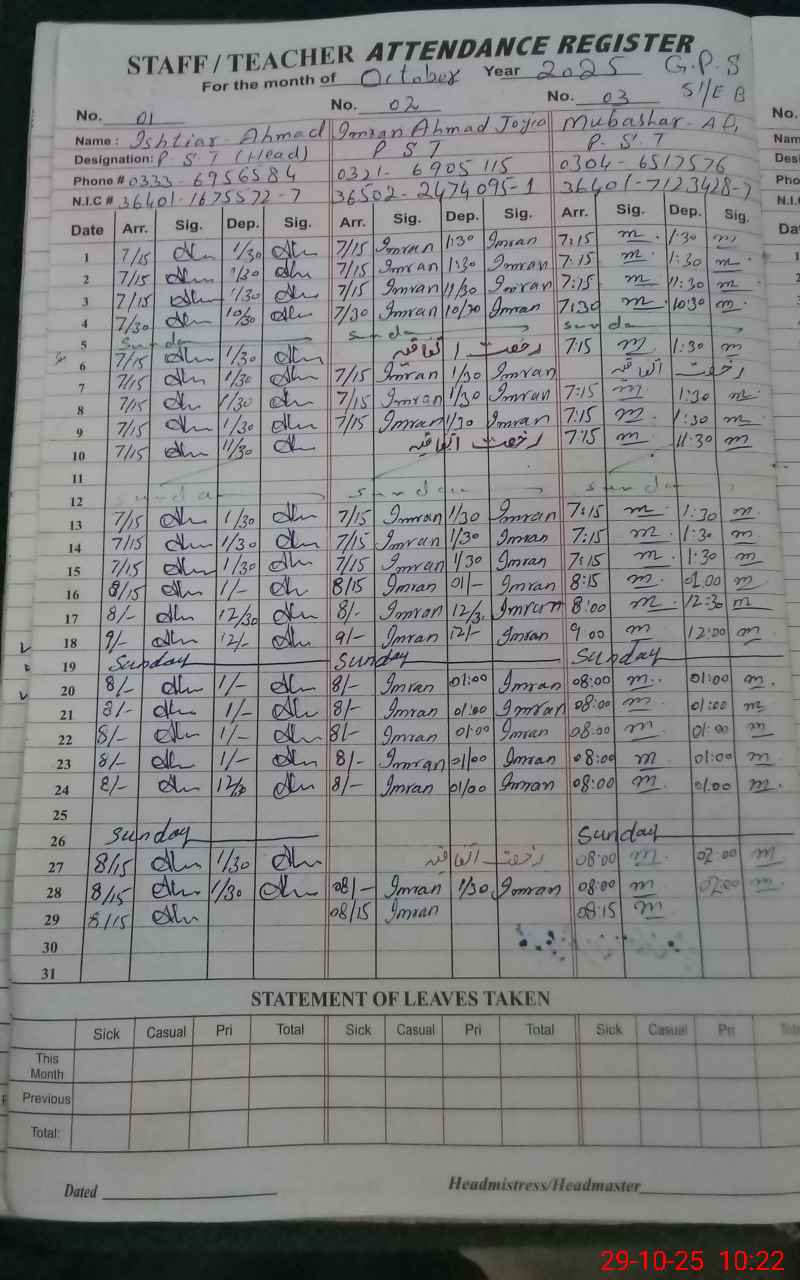 STAFF / TEACHER ATTENDANCE REGISTER
For the month of October Year 2025 G.P.S
No. 01 No. 02 No. 03 S11/E B
Name: Ishtiar Ahmad Imran Ahmad Joyia Mubashar
Designation: P S T (Head) P S T P. S T
Phone # 0333-6956584 0321-6905115 0304-6517576
N.I.C # 36401-1675572-7 36502-2474095-1 36401-7123428-7
Date Arr. Sig. Dep. Sig. Arr. Sig. Dep. Sig. Arr. Sig. Dep. Sig.
1 7/15 1/30 7/15 Imran 1:30 Imran 7:15 m 1:30 m
2 7/15 1/30 7/15 Imran 1:30 Imran 7:15 m 1:30 m
3 7/15 1/30 7/15 Imran 11/30 Imran 7:15 m 11:30 m
4 7/30 10/30 7/30 Imran 10/30 Imran 7:30 m 10:30 m
5 Sunda sunda sunda
6 7/15 1/30 رخصت اتفاقیہ 7:15 m 1:30 m
7 7/15 1/30 7/15 Imran 1/30 Imran رخصت اتفاقیہ
8 7/15 1/30 7/15 Imran 1/30 Imran 7:15 m 1:30 m
9 7/15 1/30 7/15 Imran 1/30 Imran 7:15 m 1:30 m
10 7/15 11/30 رخصت اتفاقیہ 7:15 m 11:30 m
11
12 sunda sunda sunda
13 7/15 1/30 7/15 Imran 1/30 Imran 7:15 m 1:30 m
14 7/15 1/30 7/15 Imran 1/30 Imran 7:15 m 1:30 m
15 7/15 1/30 7/15 Imran 1/30 Imran 7:15 m 1:30 m
16 8/15 1/- 8/15 Imran 01/- Imran 8:15 m 01.00 m
17 8/- 12/30 8/- Imran 12/3 Imran 8:00 m 12:30 m
18 9/- 12/- 9/- Imran 12/- Imran 9 00 m 12:00 m
19 Sunday Sunday Sunday
20 8/- 1/- 8/- Imran 01:00 Imran 08:00 m 01:00 m
21 8/- 1/- 8/- Imran 01:00 Imran 08:00 m 01:00 m
22 8/- 1/- 8/- Imran 01:00 Imran 08:00 m 01:00 m
23 8/- 1/- 8/- Imran 01/00 Imran 08:00 m 01:00 m
24 8/- 8/- Imran 01/00 Imran 08:00 m 01:00 m
25
26 Sunday Sunday
27 8/15 1/30 رخصت اتفاقیہ 08:00 m 02:00 m
28 8/15 1/30 08/- Imran 1/30 Imran 08:00 m 02:00 m
29 8/15 08/15 Imran 08:15 m
30
31
STATEMENT OF LEAVES TAKEN
Sick Casual Pri Total Sick Casual Pri Total Sick Casual Pri
This Month
Previous
Total:
Dated Headmistress/Headmaster
29-10-25 10:22